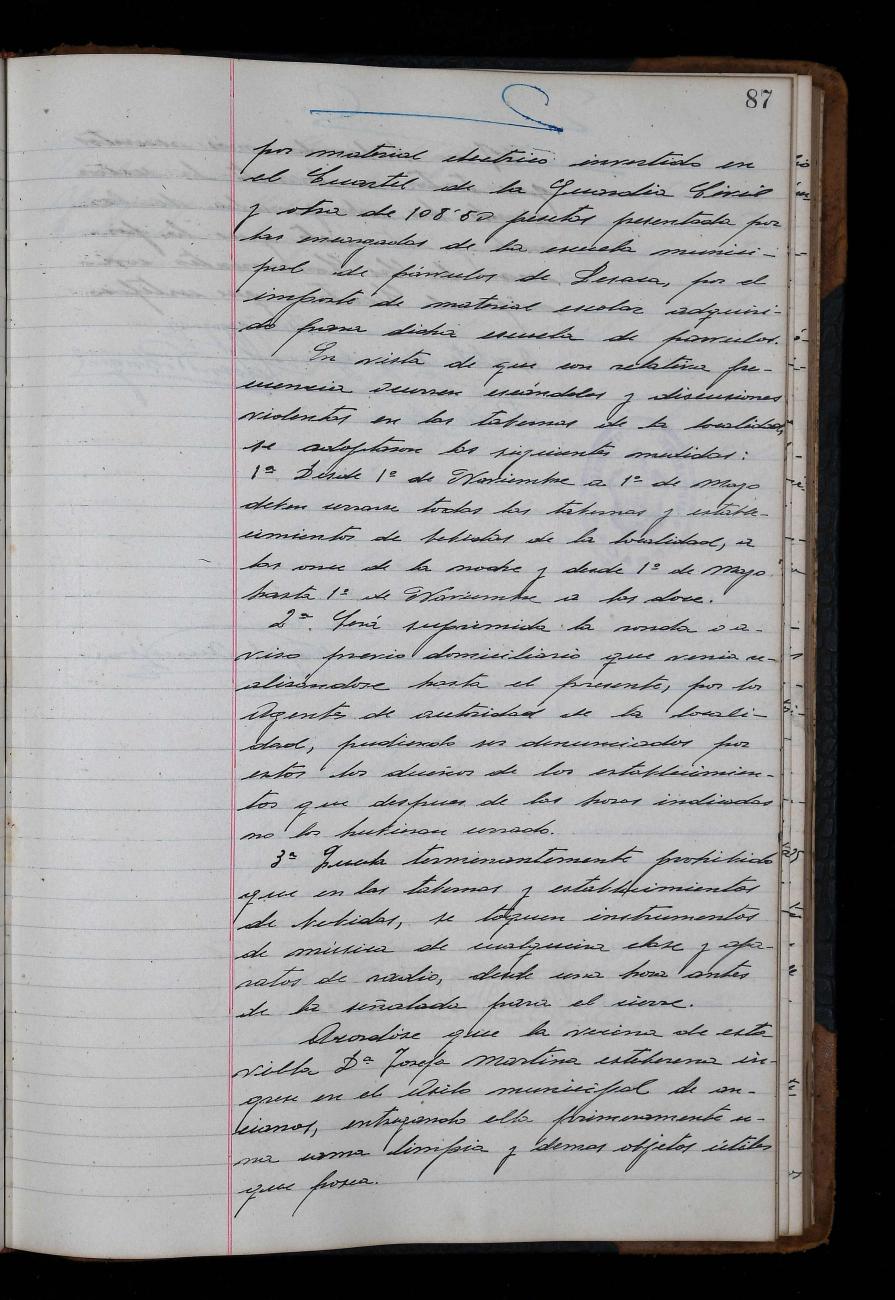 87
por material electrico invertido en
el Cuartel de la Guardia Civil
y otra de 108'50 pesetas presentada por
las encargadas de la escuela munici-
pal de párvulos de Lesaca, por el
importe de material escolar adquiri-
do para dicha escuela de parvulos.
En vista de que con relativa fre-
cuencia ocurren escándolos y discusiones
violentas en las tabernas de la localidad,
se adoptaron las siguientes medidas:
1ª Desde 1º de Noviembre a 1º de Mayo
deben cerrarse todas las tabernas y estable-
cimientos de bebidas de la localidad, a
las once de la noche y desde 1º de Mayo
hasta 1º de Noviembre a las doce.
2ª Será suprimida la ronda o a-
viso previo domiciliario que venia re-
alizandose hasta el presente, por los
Agentes de autoridad de la locali-
dad, pudiendo ser denunciados por
estos los dueños de los establecimien-
tos que despues de las horas indicadas
no los hubieran cerrado.
3ª Queda terminantemente prohibido
que en las tabernas y establecimientos
de bebidas, se toquen instrumentos
de música de cualquiera clase y apa-
ratos de radio, desde una hora antes
de la señalada para el cierre.
Acordóse que la vecina de esta
villa Dª Josefa Martina esteberena in-
grese en el Asilo municipal de an-
cianos, entregando ella primeramente u-
na cama limpia y demas objetos útiles
que posea.